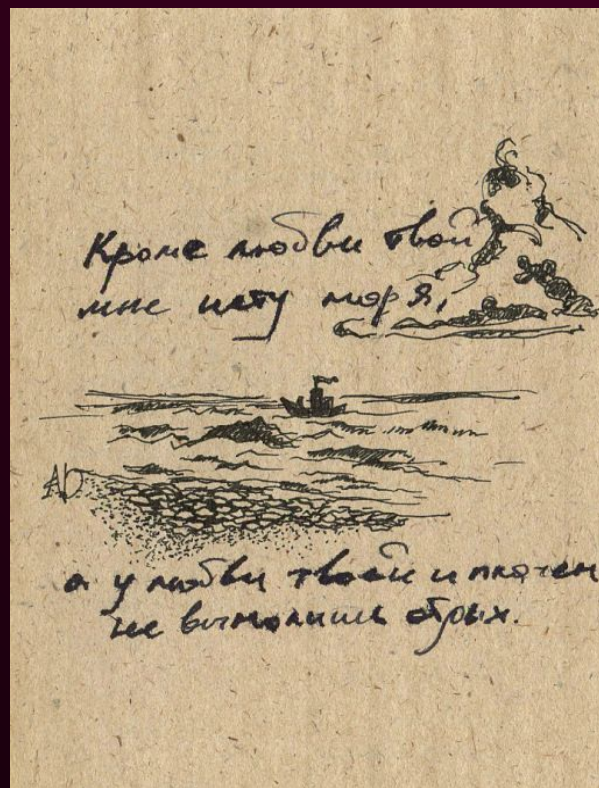 Кроме любви твоей
мне нету моря,
АД.
а у любви твоей и плачем
не вымолишь отдых.